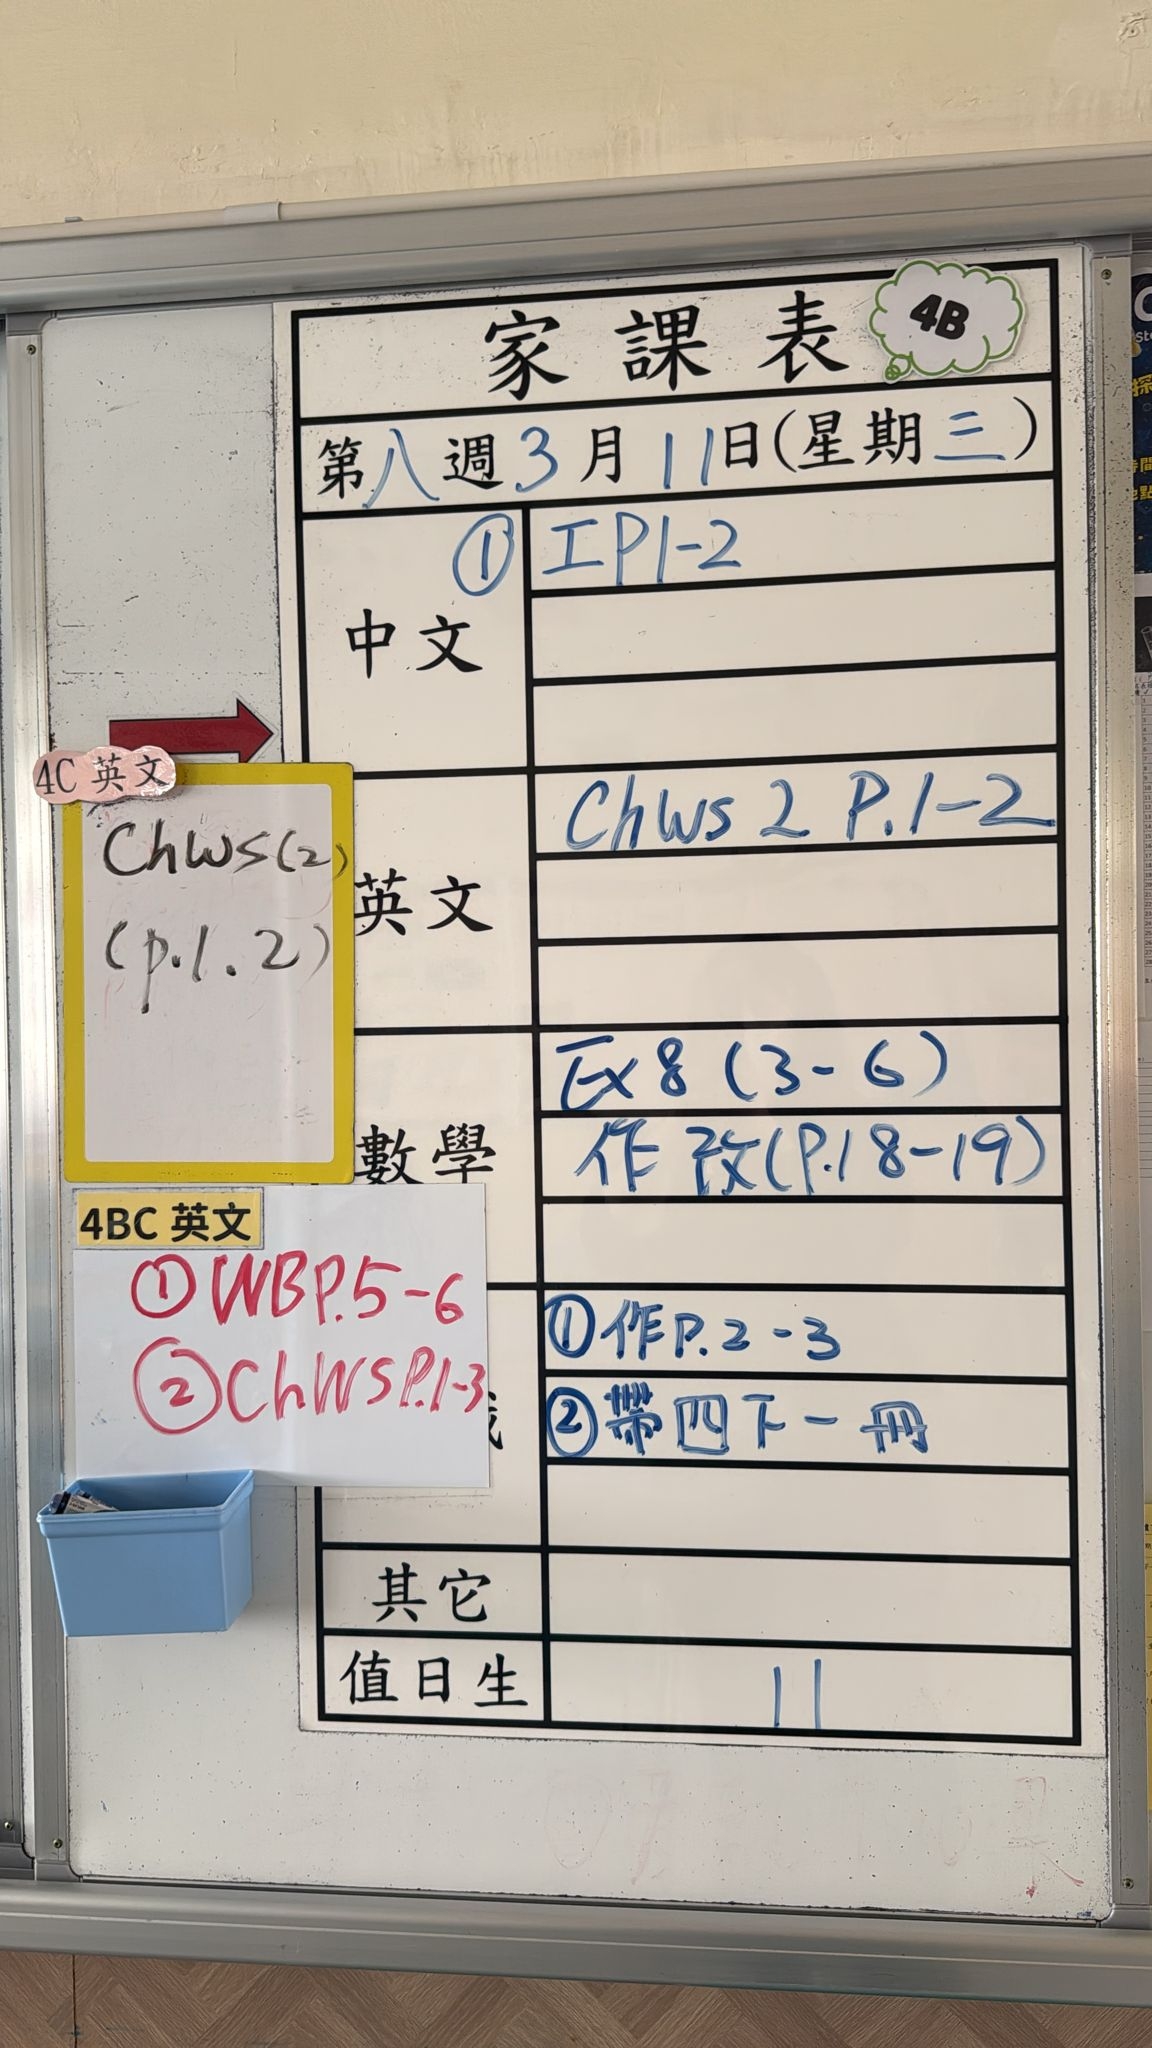 家課表 4B
第八週3月11日(星期三)
中文
① 工P1-2
4C 英文
Chws(2)
(p.1.2)
英文
Chws 2 P.1-2
數學
Ex8 (3-6)
作改(P.18-19)
4BC 英文
①WBP.5-6
②ChWSP.1-3
①作P.2-3
②帶四下一冊
其它
值日生
11